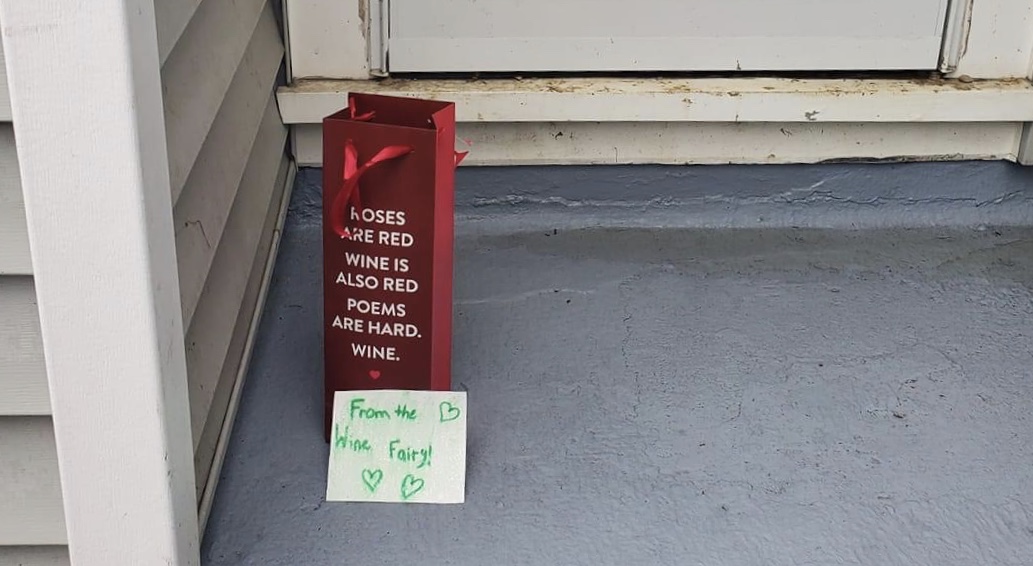 ROSES
ARE RED
WINE IS
ALSO RED
POEMS
ARE HARD.
WINE.
From the
Wine Fairy!